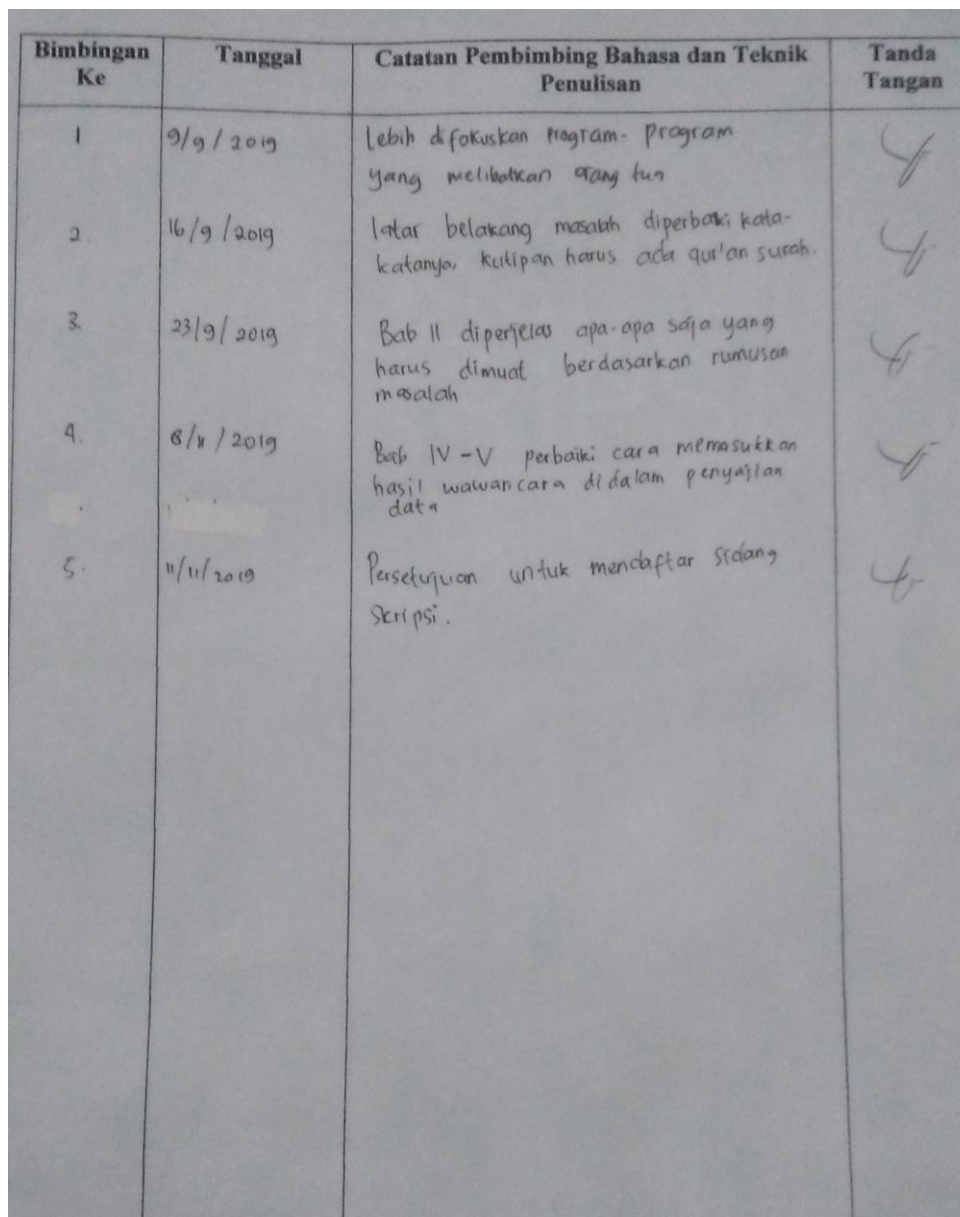 Bimbingan Ke
Tanggal
Catatan Pembimbing Bahasa dan Teknik
Penulisan
Tanda Tangan
1 9/9/2019 Lebih difokuskan program-program
yang melibatkan orang tua
2. 16/9/2019 latar belakang masalah diperbaki kata-
katanya, kutipan harus ada qur'an surah.
3. 23/9/2019 Bab II diperjelas apa-apa saja yang
harus dimuat berdasarkan rumusan
masalah
4. 8/11/2019 Bab IV-V perbaiki cara memasukkan
hasil wawancara didalam penyajian
data
5. 11/11/2019 Persetujuan untuk mendaftar sidang
skripsi.